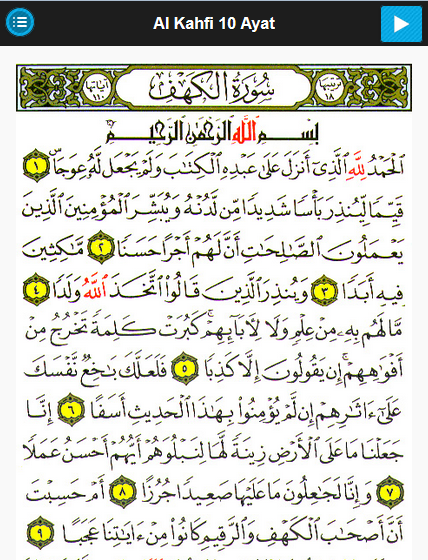 Al Kahfi 10 Ayat
آياتها ١١٠ سُورَةُ الكَهْفِ ترتيبها ١٨
بِسْمِ اللَّهِ الرَّحْمَٰنِ الرَّحِيمِ
الْحَمْدُ لِلَّهِ الَّذِي أَنزَلَ عَلَىٰ عَبْدِهِ الْكِتَابَ وَلَمْ يَجْعَل لَّهُ عِوَجًا ١
قَيِّمًا لِّيُنذِرَ بَأْسًا شَدِيدًا مِّن لَّدُنْهُ وَيُبَشِّرَ الْمُؤْمِنِينَ الَّذِينَ
يَعْمَلُونَ الصَّالِحَاتِ أَنَّ لَهُمْ أَجْرًا حَسَنًا ٢ مَّاكِثِينَ
فِيهِ أَبَدًا ٣ وَيُنذِرَ الَّذِينَ قَالُوا اتَّخَذَ اللَّهُ وَلَدًا ٤
مَّا لَهُم بِهِ مِنْ عِلْمٍ وَلَا لِآبَائِهِمْ كَبُرَتْ كَلِمَةً تَخْرُجُ مِنْ
أَفْوَاهِهِمْ إِن يَقُولُونَ إِلَّا كَذِبًا ٥ فَلَعَلَّكَ بَاخِعٌ نَّفْسَكَ
عَلَىٰ ءَاثَارِهِمْ إِن لَّمْ يُؤْمِنُوا بِهَٰذَا الْحَدِيثِ أَسَفًا ٦ إِنَّا
جَعَلْنَا مَا عَلَى الْأَرْضِ زِينَةً لَّهَا لِنَبْلُوَهُمْ أَيُّهُمْ أَحْسَنُ عَمَلًا
٧ وَإِنَّا لَجَاعِلُونَ مَا عَلَيْهَا صَعِيدًا جُرُزًا ٨ أَمْ حَسِبْتَ
أَنَّ أَصْحَابَ الْكَهْفِ وَالرَّقِيمِ كَانُوا مِنْ ءَايَاتِنَا عَجَبًا ٩